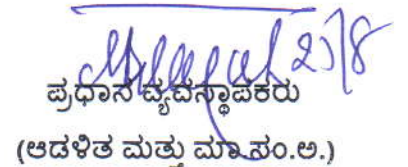 2/8
ಪ್ರಧಾನ ವ್ಯವಸ್ಥಾಪಕರು
(ಆಡಳಿತ ಮತ್ತು ಮಾ.ಸಂ.ಅ.)